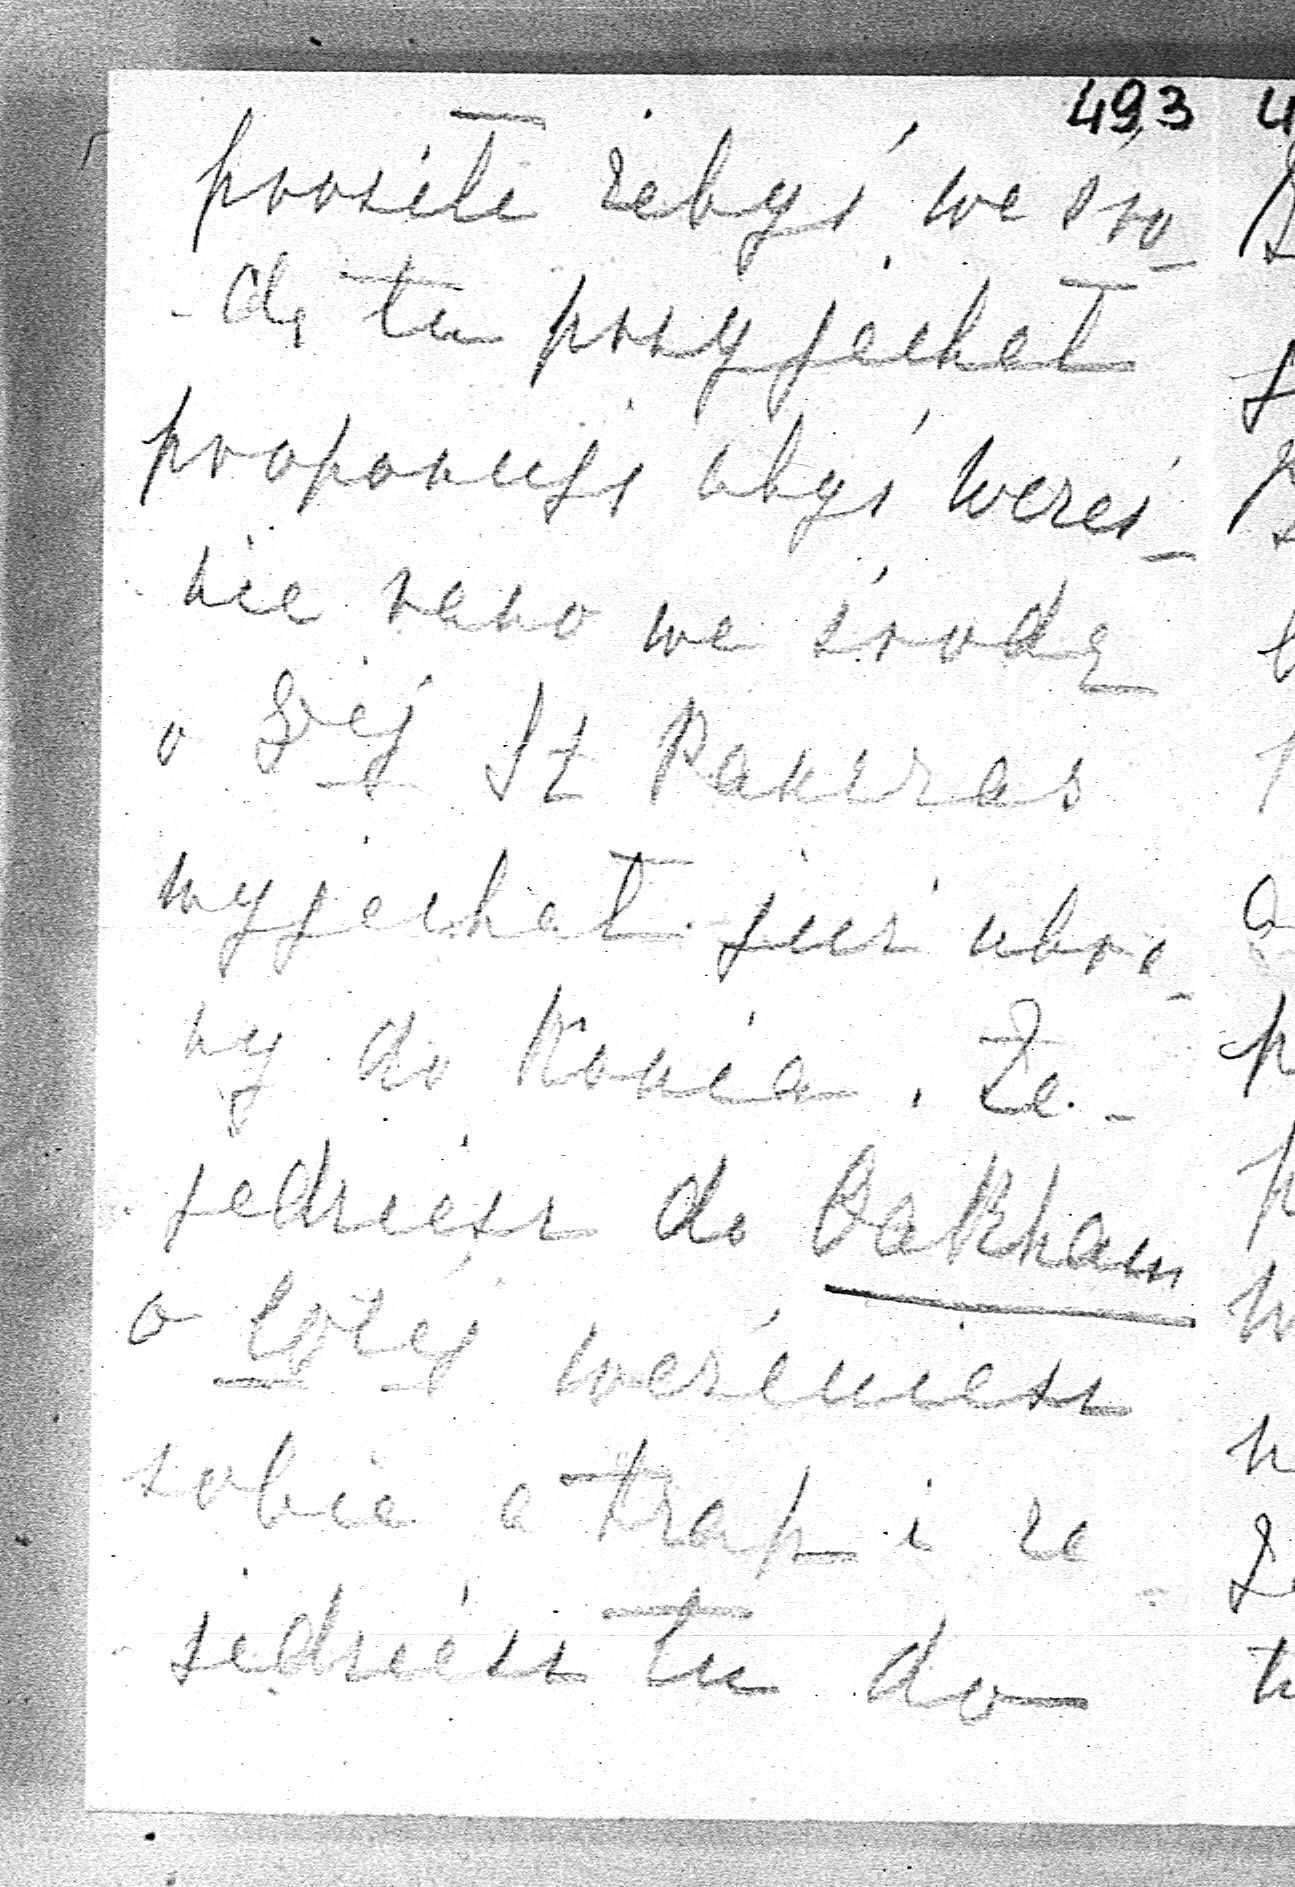 493
prosili żebyś we śro-
dę tu przyjechał
proponuję abyś wcześ-
nie rano we środę
St Pancras
wyjechał już ubra-
ny do konia. Za-
jedziesz do Oakham
o weźmiesz
sobie a trap i za
jedziesz tu do